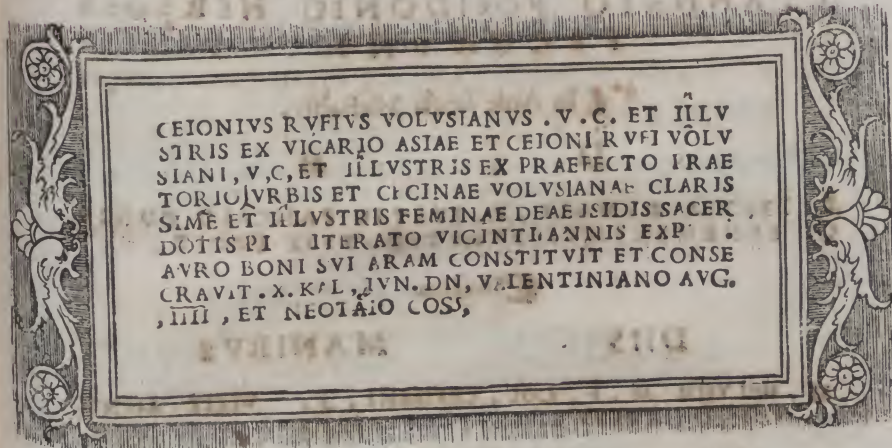 CEIONIVS RVFIVS VOLVSIANVS . V . C . ET ILLV
STRIS EX VICARIO ASIAE ET CEIONI RVFI VOLV
SIANI, V, C, ET ILLVSTRIS EX PRAEFECTO PRAE
TORIO, VRBIS ET CECINAE VOLVSIANAE CLARIS
SIME ET ILLVSTRIS FEMINAE DEAE ISIDIS SACER
DOTIS PI ITERATO VIGINTI ANNIS EXP .
AVRO BONI SVI ARAM CONSTITVIT ET CONSE
CRAVIT . X . KAL, IVN. DN, VALENTINIANO AVG.
, IIII , ET NEOTAIO COSS,